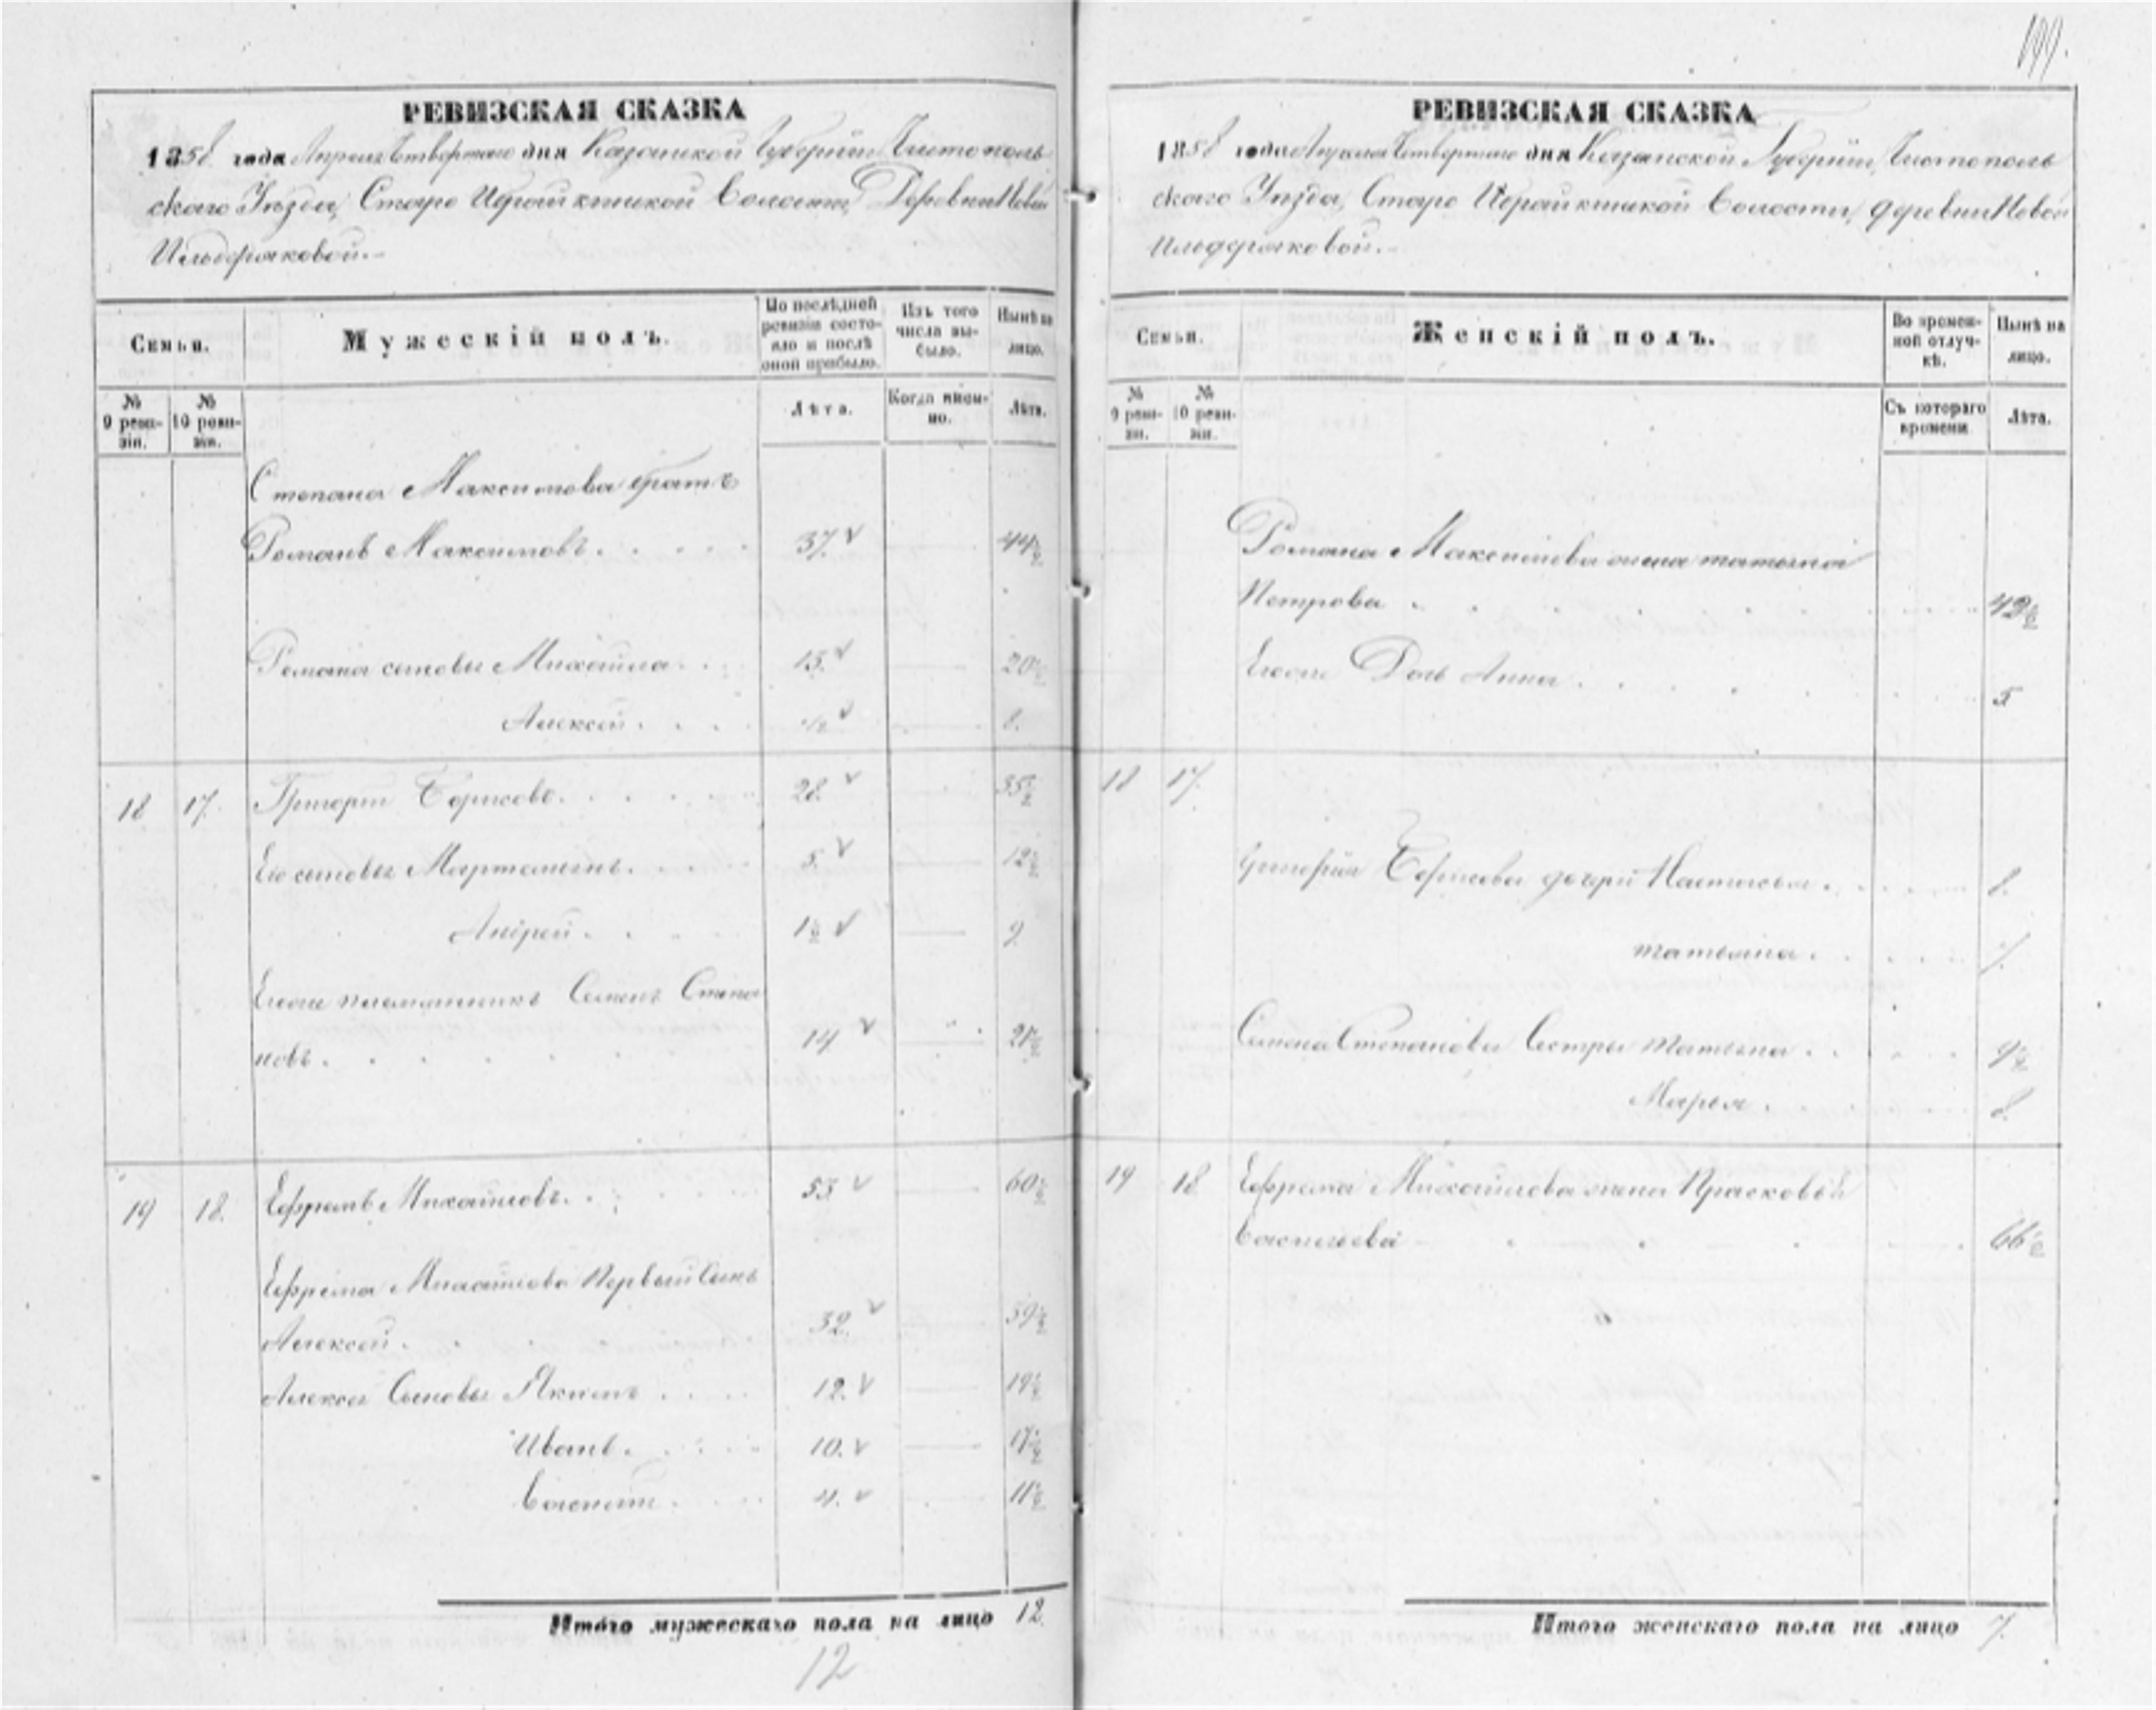 199.
РЕВИЗСКАЯ СКАЗКА
1858 года Апреля Четвертаго дня Казанской Губерніи, Чистополь
скаго Уѣзда, Старо Волости, Деревни Новой
Ильдеряковой.
Семьи.
Мужескій полъ.
По послѣдней ревизіи состо-
яло и послѣ оной прибыло.
Изъ того числа вы-
было.
Нынѣ на лицо.
№ 9 реви-
зіи.
№ 10 реви-
зіи.
Лѣта.
Когда имен-
но.
Лѣта.
Степана Максимова братъ
Романъ Максимовъ. 37. 44½
Романа сыновья Михайла. 13. 20½
Алексей. ½ 8.
18 17. Григорій Борисовъ. 28. 35½
Его сыновья 5. 12½
Андрей. 1½ 9
Егоже племянникъ Семенъ Степа
новъ. 14 21½
19 18. Ефремъ Михайловъ. 53 60½
Ефрема Михайлова Первый Сынъ
Алексей. 32. 39½
Алексея Сыновья Якимъ 12. 19½
Иванъ. 10. 17½
Василій. 4. 11½
Итого мужескаго пола на лицо 12.
12
РЕВИЗСКАЯ СКАЗКА
1858 года Апреля Четвертаго дня Казанской Губерніи, Чистополь
скаго Уѣзда, Старо Волости, деревни Новой
Ильдеряковой.
Семьи.
Женскій полъ.
Во времен-
ной отлуч-
кѣ.
Нынѣ на лицо.
№ 9 реви-
зіи.
№ 10 реви-
зіи.
Съ котораго времени
Лѣта.
Романа Максимова жена Татьяна
Петрова 42½
Егоже Дочь Анна. 5
18 17.
Григорія Борисова дочери Настасья. 8.
Татьяна.
Семена Степанова Сестры Татьяна. 9½
Марья. 8.
19 18 Ефрема Михайлова жена Прасковья
Васильева 66½
Итого женскаго пола на лицо 7.